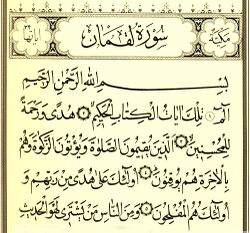 مكية سورة لقمان آياتها ٣٤
بسم الله الرحمن الرحيم
الٓمٓ ۝ تِلْكَ ءَايَاتُ الْكِتَابِ الْحَكِيمِ ۝ هُدًى وَرَحْمَةً
لِّلْمُحْسِنِينَ ۝ الَّذِينَ يُقِيمُونَ الصَّلَوٰةَ وَيُؤْتُونَ الزَّكَوٰةَ وَهُم
بِالْءَاخِرَةِ هُمْ يُوقِنُونَ ۝ أُو۟لَٰٓئِكَ عَلَىٰ هُدًى مِّن رَّبِّهِمْ وَ
أُو۟لَٰٓئِكَ هُمُ الْمُفْلِحُونَ ۝ وَمِنَ النَّاسِ مَن يَشْتَرِى لَهْوَ الْحَدِيثِ